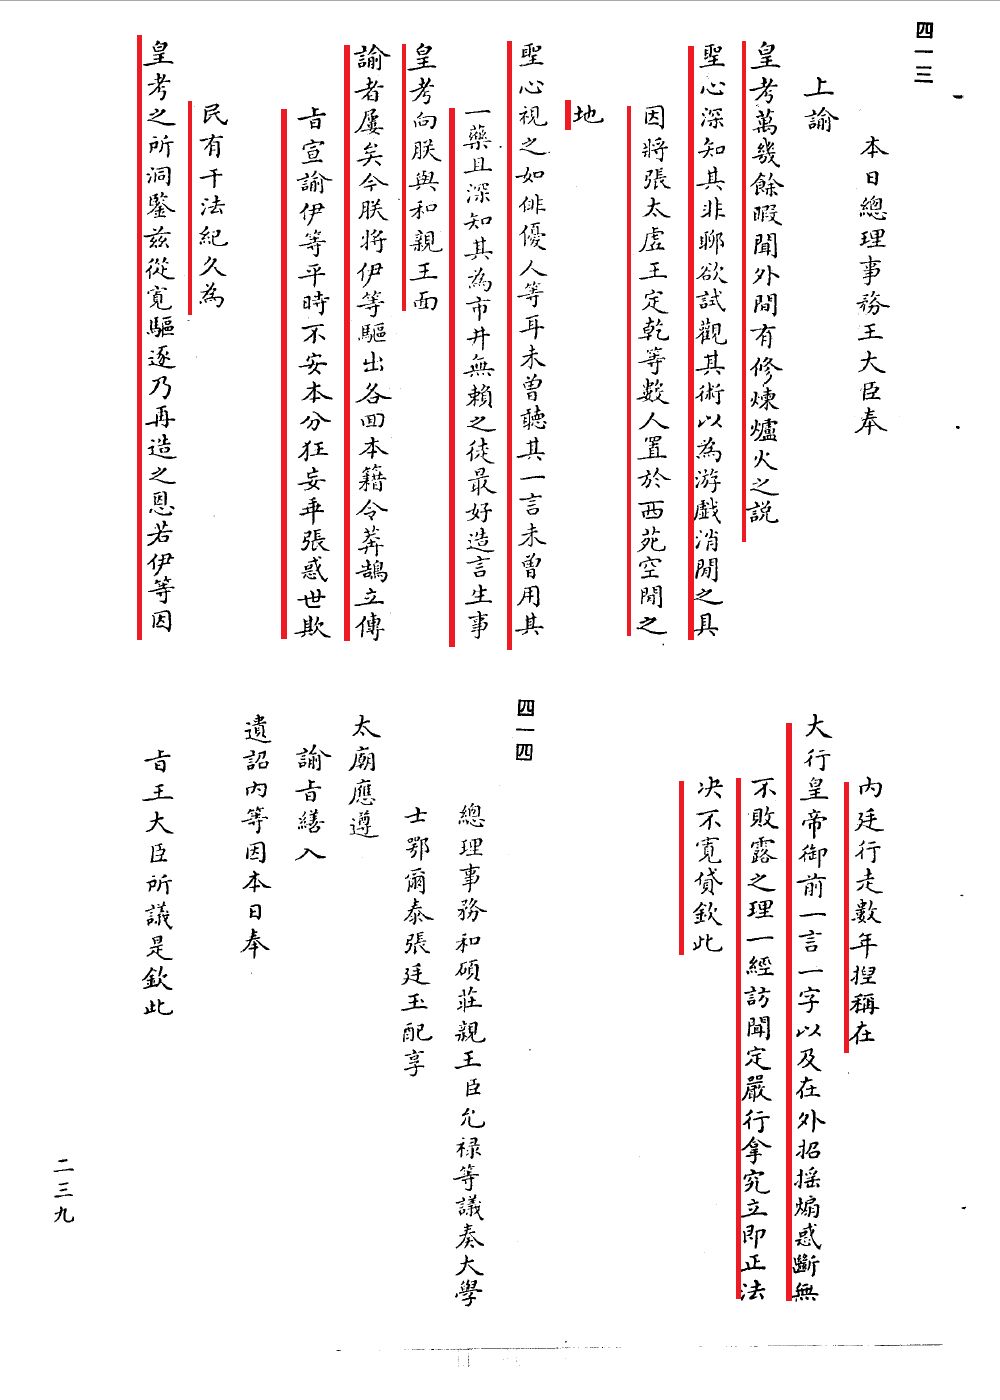 四一三
本日總理事務王大臣奉
上諭
皇考萬幾餘暇聞外間有修煉爐火之說
聖心深知其非聊欲試觀其術以為游戲消閒之具
因將張太虛王定乾等數人置於西苑空閒之
地
聖心視之如俳優人等耳未曾聽其一言未曾用其
一藥且深知其為市井無賴之徒最好造言生事
皇考向朕與和親王面
諭者屢矣今朕將伊等驅出各回本籍令莽鵠立傳
旨宣諭伊等平時不安本分狂妄乖張惑世欺
民有干法紀久為
皇考之所洞鑒茲從寬驅逐乃再造之恩若伊等因
內廷行走數年捏稱在
大行皇帝御前一言一字以及在外招搖煽惑斷無
不敗露之理一經訪聞定嚴行拿究立即正法
决不寬貸欽此
四一四
總理事務和碩莊親王臣允祿等議奏大學
士鄂爾泰張廷玉配享
太廟應遵
諭旨繕入
遺詔內等因本日奉
旨王大臣所議是欽此
二三九